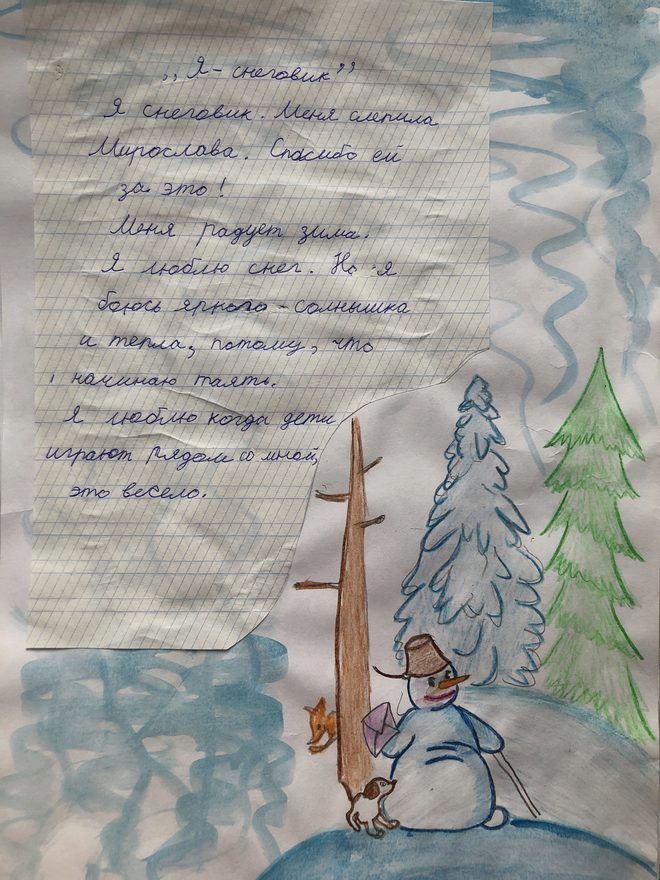 „Я - снеговик”
Я снеговик. Меня слепила
Мирослава. Спасибо ей
за это!
Меня радует зима.
Я люблю снег. Но я
боюсь яркого - солнышка
и тепла, потому, что
начинаю таять.
Я люблю когда дети
играют рядом со мной,
это весело.